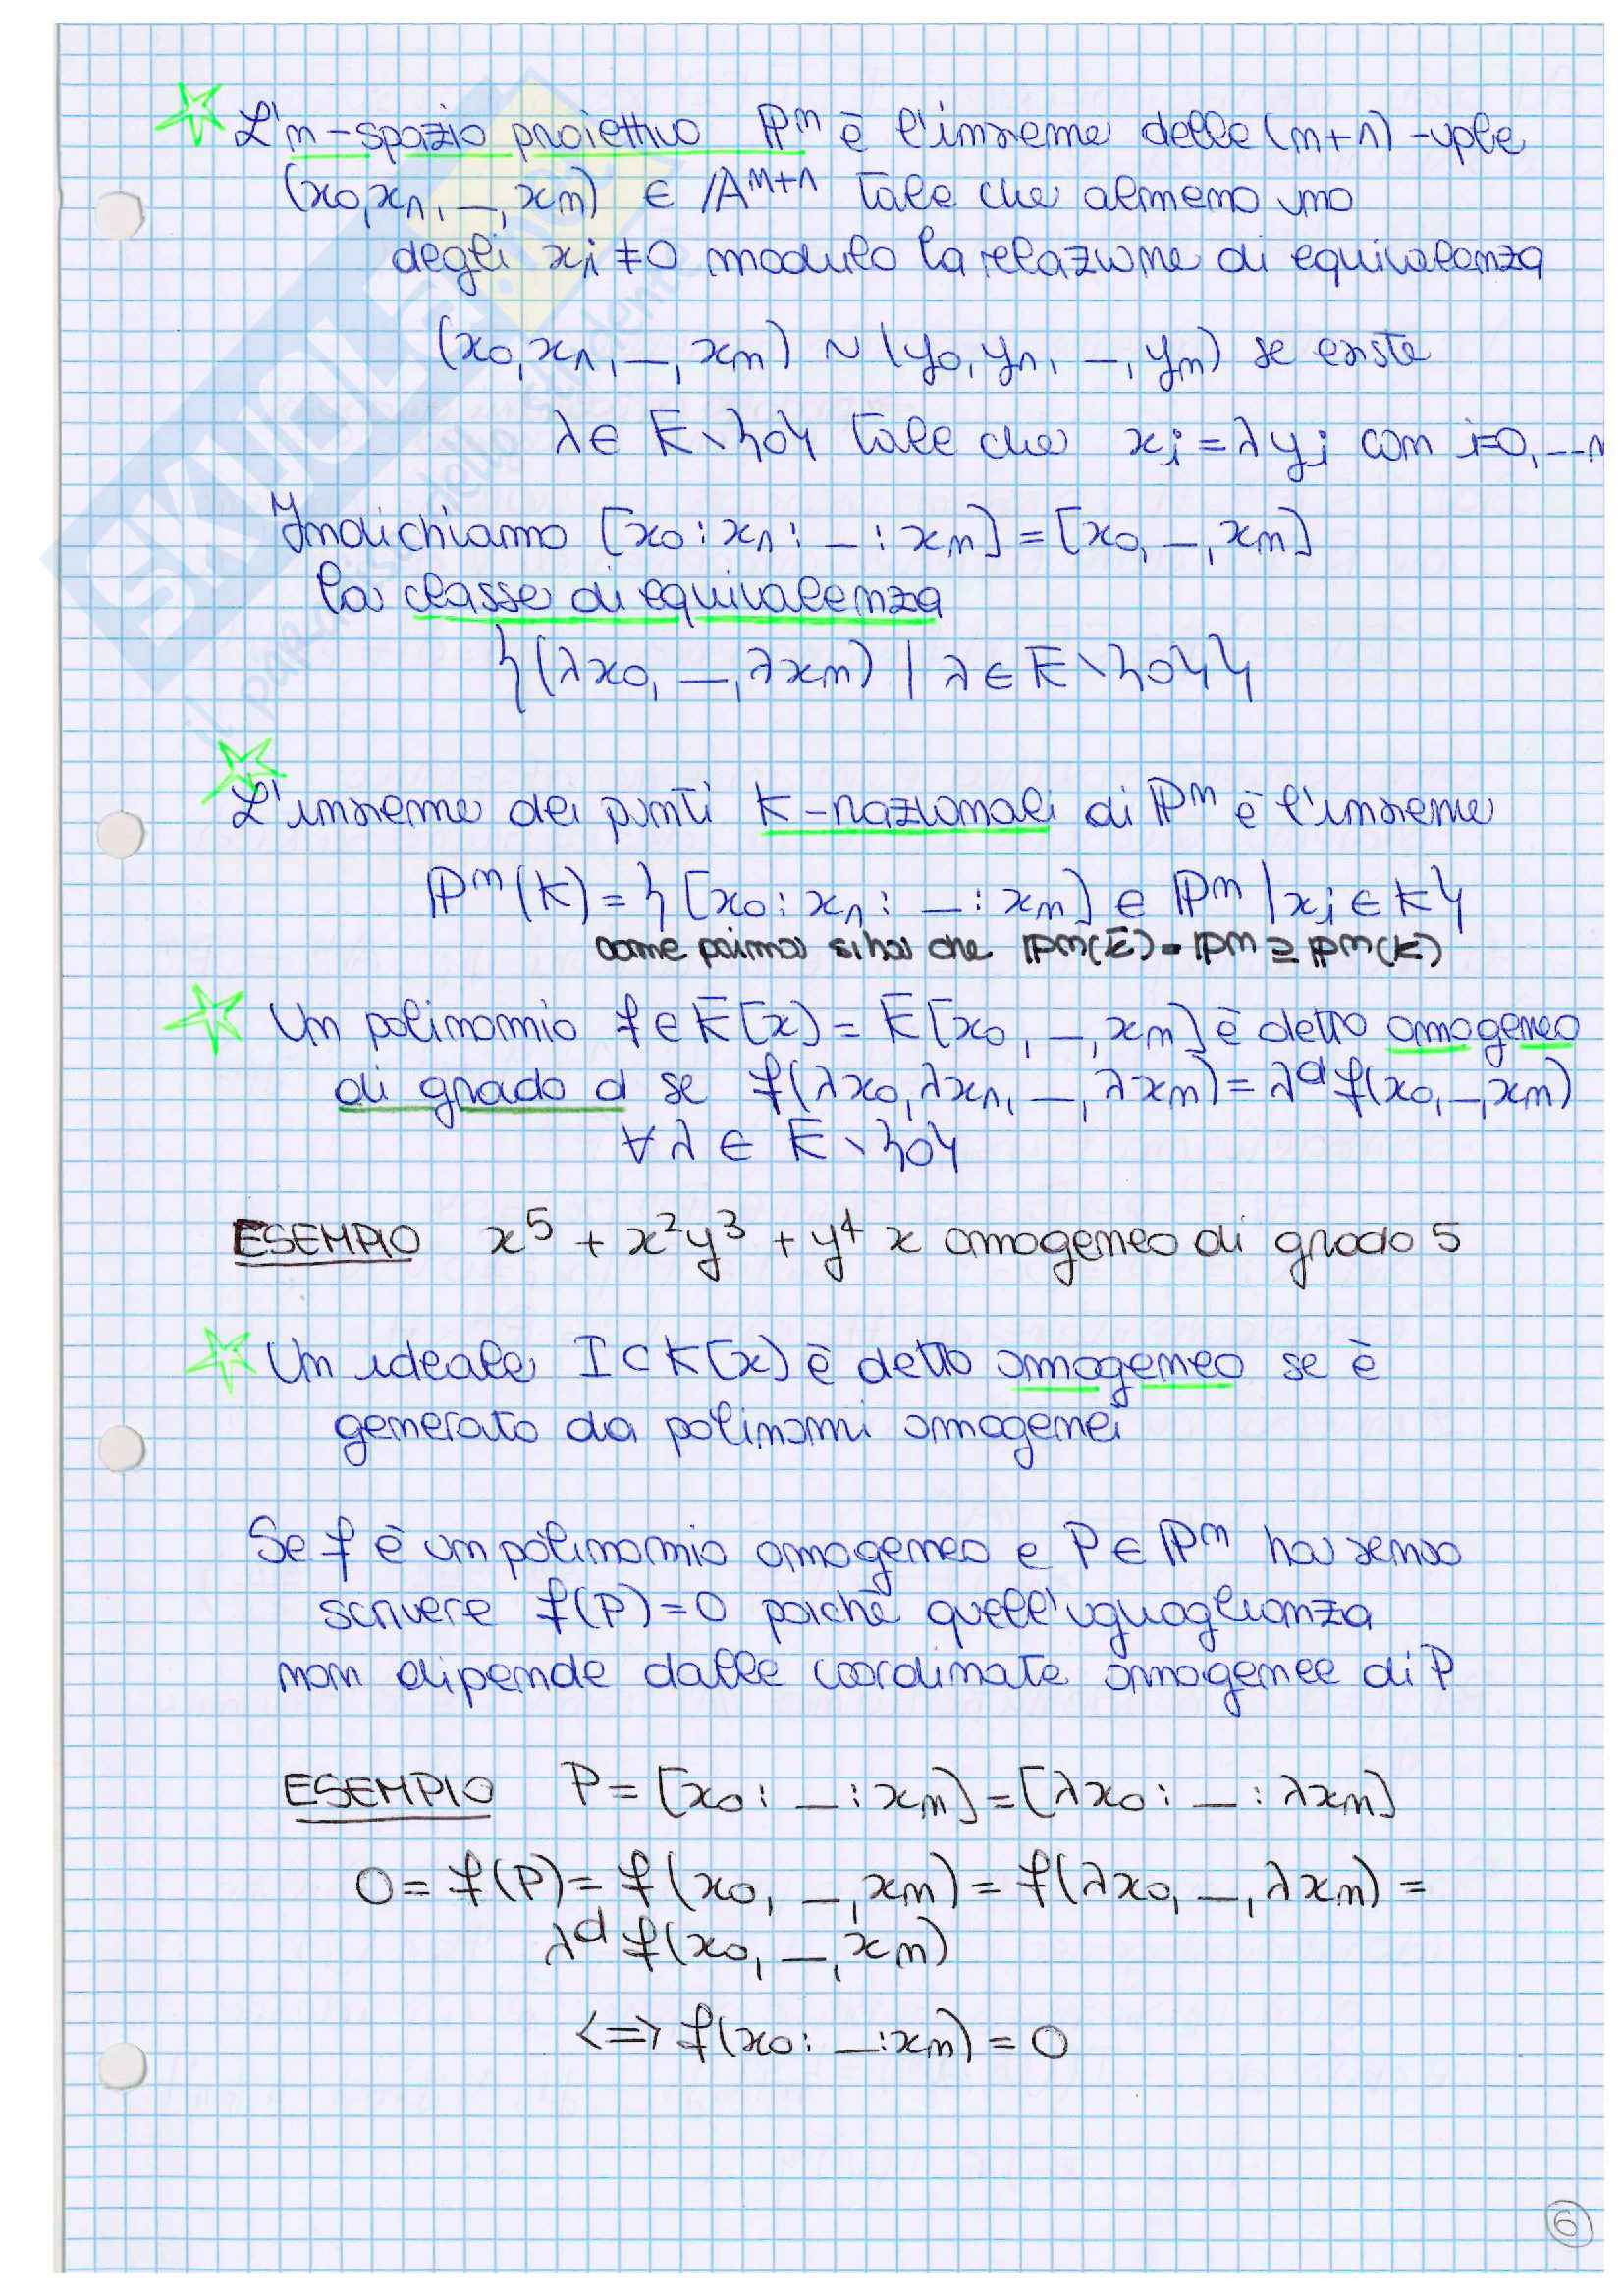 L'n-spazio proiettivo ℙⁿ è l'insieme delle (n+1)-uple
(x₀,x₁,_,xₙ) ∈ 𝔸ⁿ⁺¹ tale che almeno uno
degli xᵢ ≠ 0 modulo la relazione di equivalenza
(x₀,x₁,_,xₙ) ~ (y₀,y₁,_,yₙ) se esiste
λ ∈ K̄ \ {0} tale che xᵢ = λyᵢ con i=0,...n
Indichiamo [x₀:x₁:_:xₙ] = [x₀,_,xₙ]
la classe di equivalenza
{(λx₀,_,λxₙ) | λ ∈ K̄ \ {0}}
L'insieme dei punti K-razionali di ℙⁿ è l'insieme
ℙⁿ(K) = {[x₀:x₁:_:xₙ] ∈ ℙⁿ | xᵢ ∈ K}
come prima si ha che ℙⁿ(K̄) = ℙⁿ ⊇ ℙⁿ(K)
Un polinomio f ∈ K̄[x] = K̄[x₀,_,xₙ] è detto omogeneo
di grado d se f(λx₀,λx₁,_,λxₙ) = λᵈ f(x₀,_,xₙ)
∀ λ ∈ K̄ \ {0}
ESEMPIO x⁵ + x²y³ + y⁴x omogeneo di grado 5
Un ideale I ⊂ K[x] è detto omogeneo se è
generato da polinomi omogenei
Se f è un polinomio omogeneo e P ∈ ℙⁿ ha senso
scrivere f(P)=0 poichè quell'uguaglianza
non dipende dalle coordinate omogenee di P
ESEMPIO P = [x₀:_:xₙ] = [λx₀:_:λxₙ]
0 = f(P) = f(x₀,_,xₙ) = f(λx₀,_,λxₙ) =
λᵈ f(x₀,_,xₙ)
⟺ f(x₀:_:xₙ) = 0
6
SKUOLA.net
il paradiso dello studente